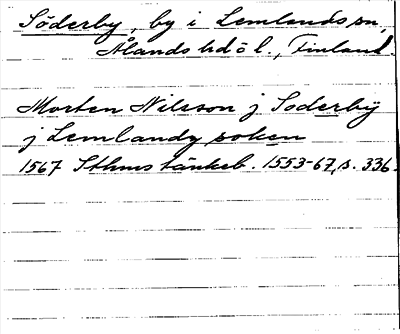 Söderby, by i Lemlands sn,
Ålands hdöl., Finland.
Morten Nilsson j Soderby
j Lemlandz soken
1567 Sthms tänkeb. 1553-67, s. 336.